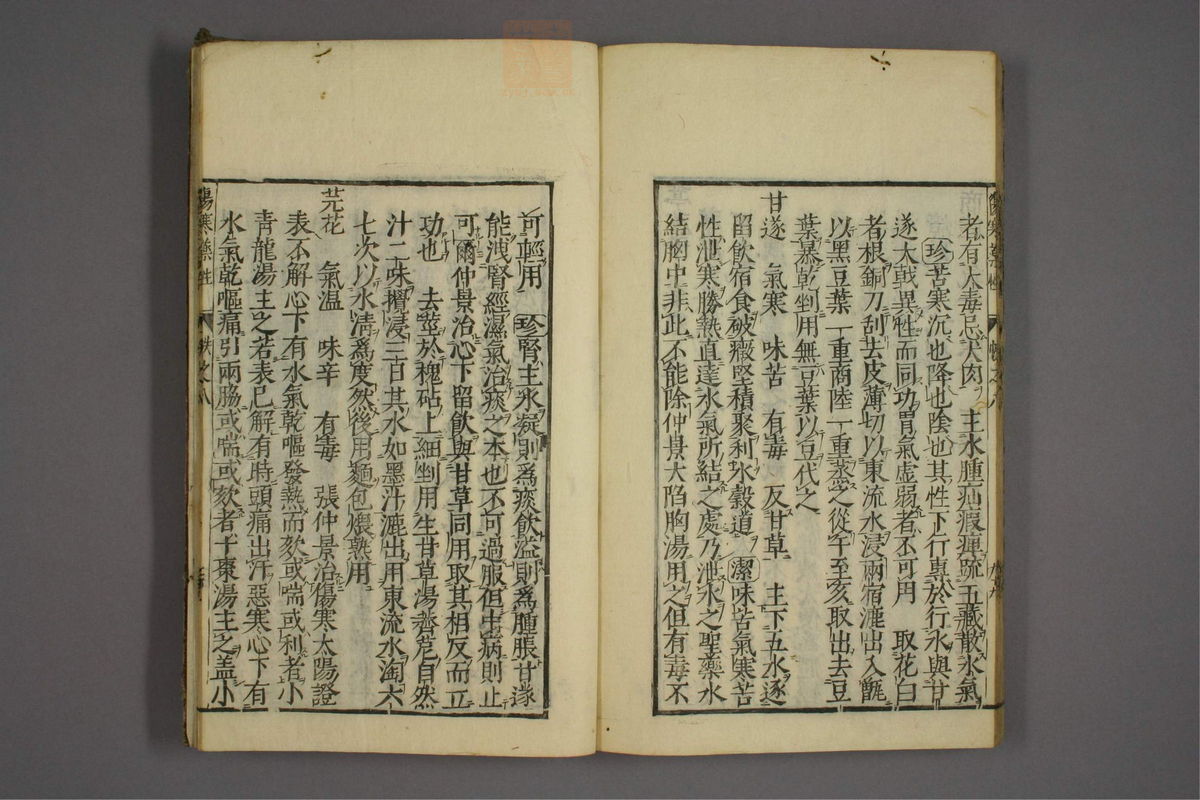 者有大毒忌犬肉 主水腫疝瘕痺疏五藏散水氣
珍苦寒沉也降也陰也其性下行專於行水與甘
遂大戟異性而同功胃氣虛弱者不可用 取花白
者根銅刀刮去皮薄切以東流水浸兩宿漉出入甑
以黑豆葉一重商陸一重蒸之從午至亥取出去豆
葉暴乾剉用無豆葉以豆代之
甘遂 氣寒 味苦 有毒 反甘草 主下五水逐
留飲宿食破癥堅積聚利水穀道 潔味苦氣寒苦
性泄寒勝熱直達水氣所結之處乃泄水之聖藥水
結胸中非此不能除仲景大陷胸湯用之但有毒不
可輕用 珍腎主水凝則爲痰飲溢則爲腫脹甘遂
能洩腎經濕氣治痰之本也不可過服但中病則止
可爾仲景治心下留飲與甘草同用取其相反而立
功也 去莖於槐砧上細剉用生甘草湯薺苨自然
汁二味攪浸三日其水如墨汁漉出用東流水淘六
七次以水清爲度然後用麵包煨熟用
芫花 氣温 味辛 有毒 張仲景治傷寒太陽證
表不解心下有水氣乾嘔發熱而欬或喘或利者小
青龍湯主之若表已解有時頭痛出汗惡寒心下有
水氣乾嘔痛引兩脇或喘或欬者十棗湯主之盖小
傷寒藥性 帙之八